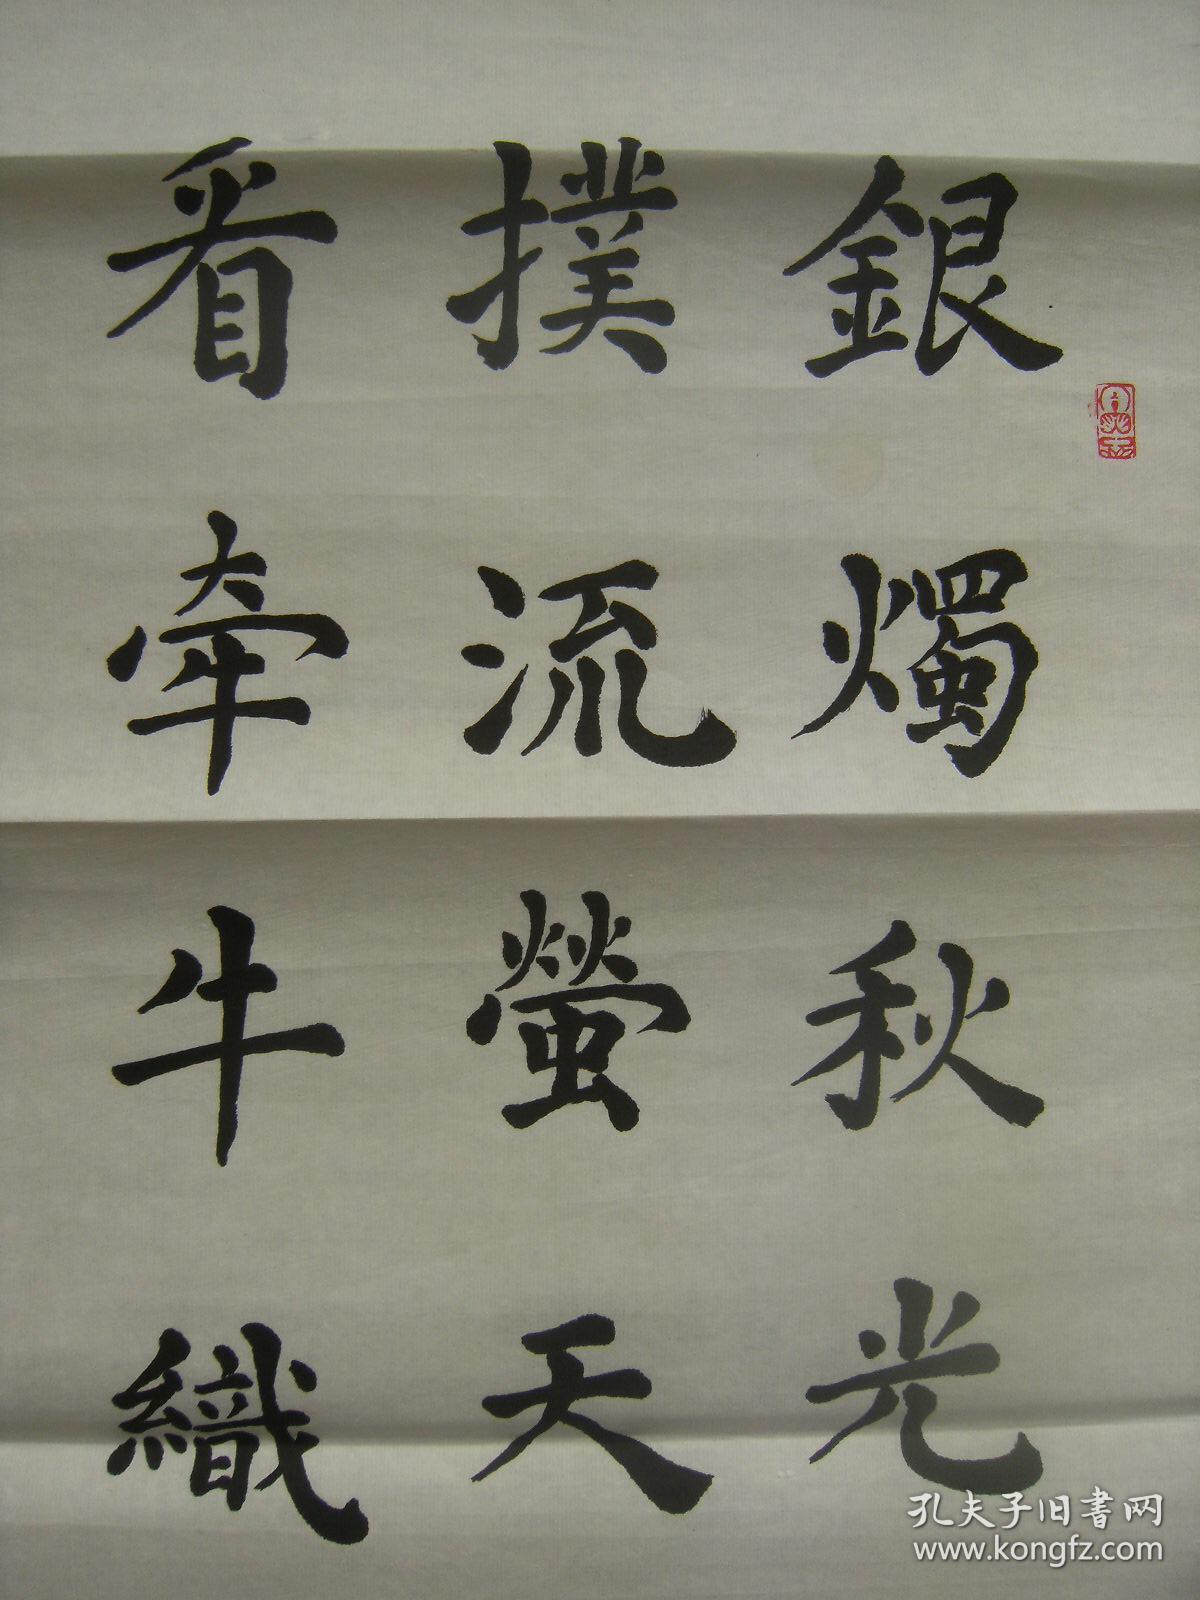 銀燭秋光
撲流螢天
看牽牛織
孔夫子旧書网
www.kongfz.com